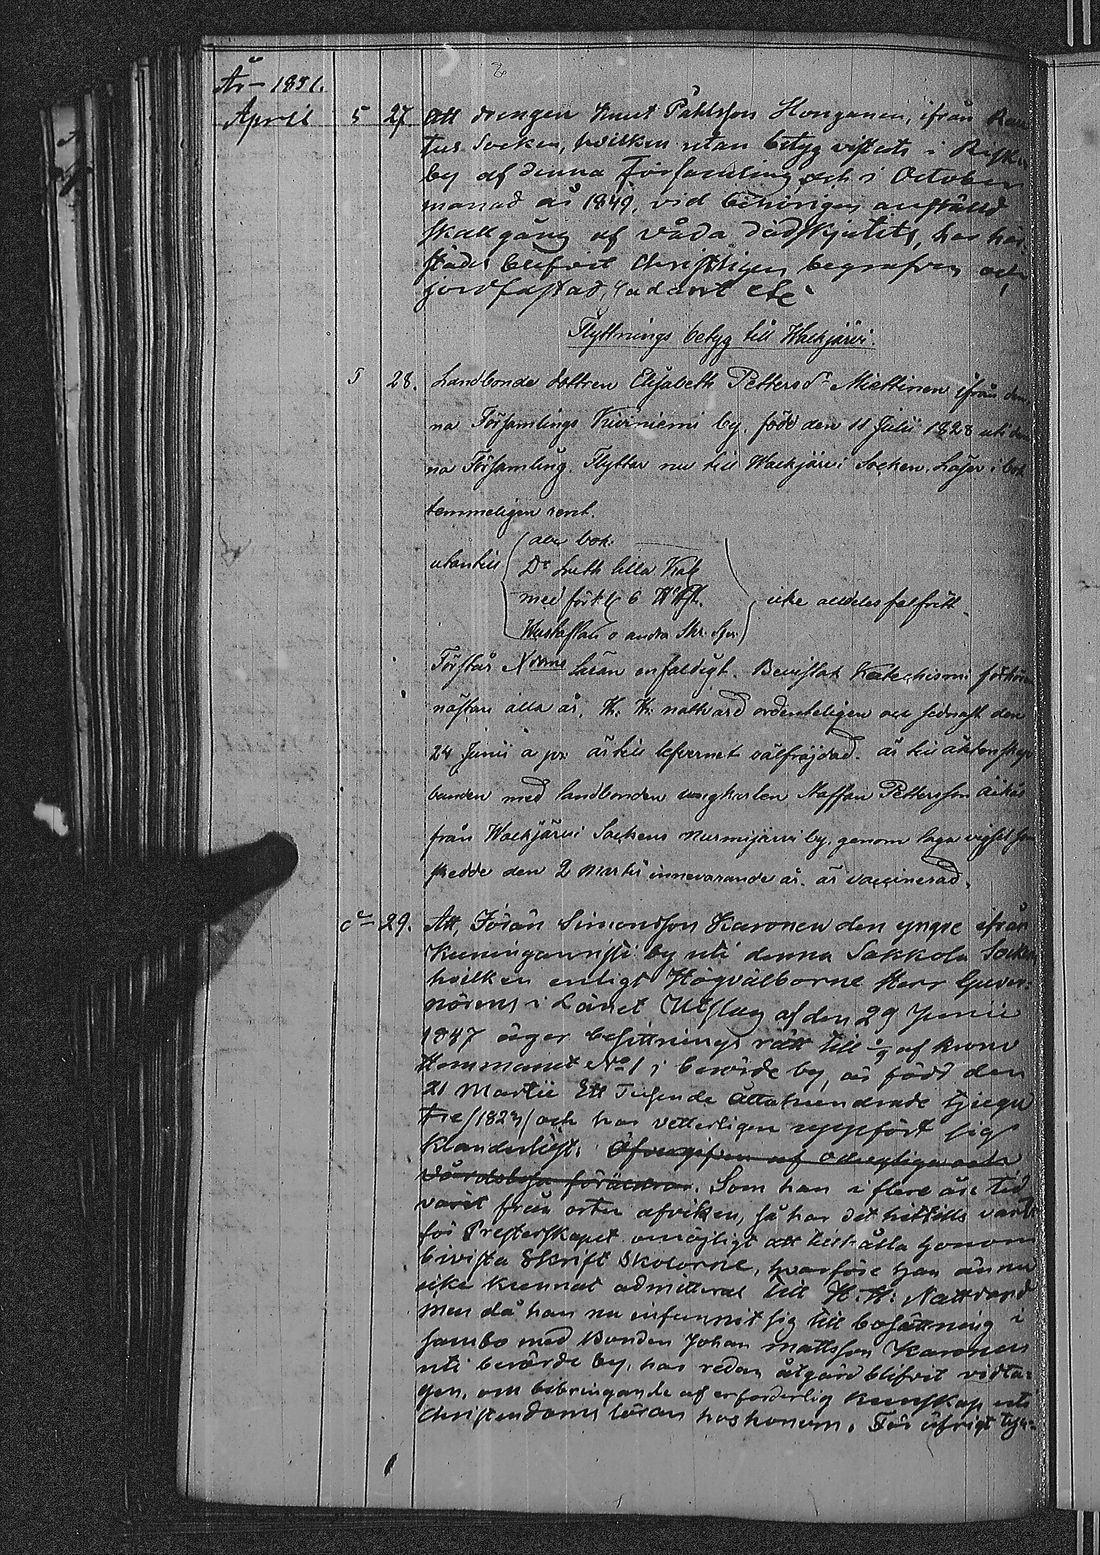 År 1851.
April 5 27 Att drengen Knut Påhlsson Honganen, ifrån Rau
tus Socken, hvilken utan betyg vistats i
by af denna Församling och i October
månad år 1849, vid behörigen anstäld
skallgång af våda dödskjutits, har här
städes blifvit Christligen begrafven och
jordfästad, sådant etc
Flyttnings betyg till Walkjärvi.
5 28. Landbonde dottren Elisabeth Pettersdr Miettinen ifrån den
na Församlings Kiviniemi by, född den 11 Julii 1828 uti den
na Församling. Flyttar nu till Walkjärvi Socken. Läser i bok
temmeligen rent.
utantill abc bok.
Dr Luth lilla Kat
med förkl 6
Hustaflan o andra icke alldeles felfritt
Förstår Xdoms Läran enfaldigt. Bevistat Katechismi förhören
nästan alla år, H. H. nattvard ordenteligen och sednast den
24 Junii a pr. är till lefvernet välfräjdad. är till äktenskap
bunden med landbonden ungkarlen Staffan Pettersson
från Walkjärvi Sockens Nurmijärvi by, genom laga vigsel som
skedde den 2 Martii innevarande år. är vaccinerad.
29. Att, Jöran Simonsson Karonen den yngre ifrån
by uti denna Sakkola Socken
hvilken enligt Högvälborne Herr Guver-
nörens i Länet Utslag af den 29 Junii
1847 äger besittnings rätt till af krono
Hemmanet No 1 i berörde by, är född den
21 Martii Ett Tusende Åttahundrade tjugu
tre (1823) och har vetterligen uppfört sig
klanderlöst. af och
föräldrar. Som han i flere års tid
varit från orten afviken, så har det hittills varit
för Presterskapet omöjligt att tillhålla honom
bivista Skrift Skolorne, hvarföre han ännu
icke kunnat admitteras till H. H. Nattvard
men då han nu infunnit sig till bosättning i
sambo med Bonden Johan Mattsson Karonen
uti berörde by, har redan åtgärd blifvit vidta-
gen, om bibringande af erforderlig kunskap uti
Christendoms läran hos honom. För öfrigt